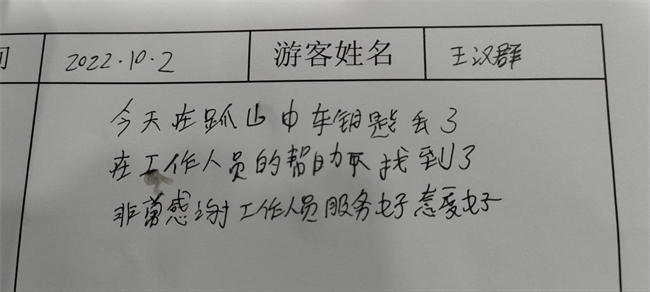 间 2022.10.2 游客姓名 王汉群
今天在爬山中车钥匙丢了
在工作人员的帮助下找到了
非常感谢工作人员服务好态度好